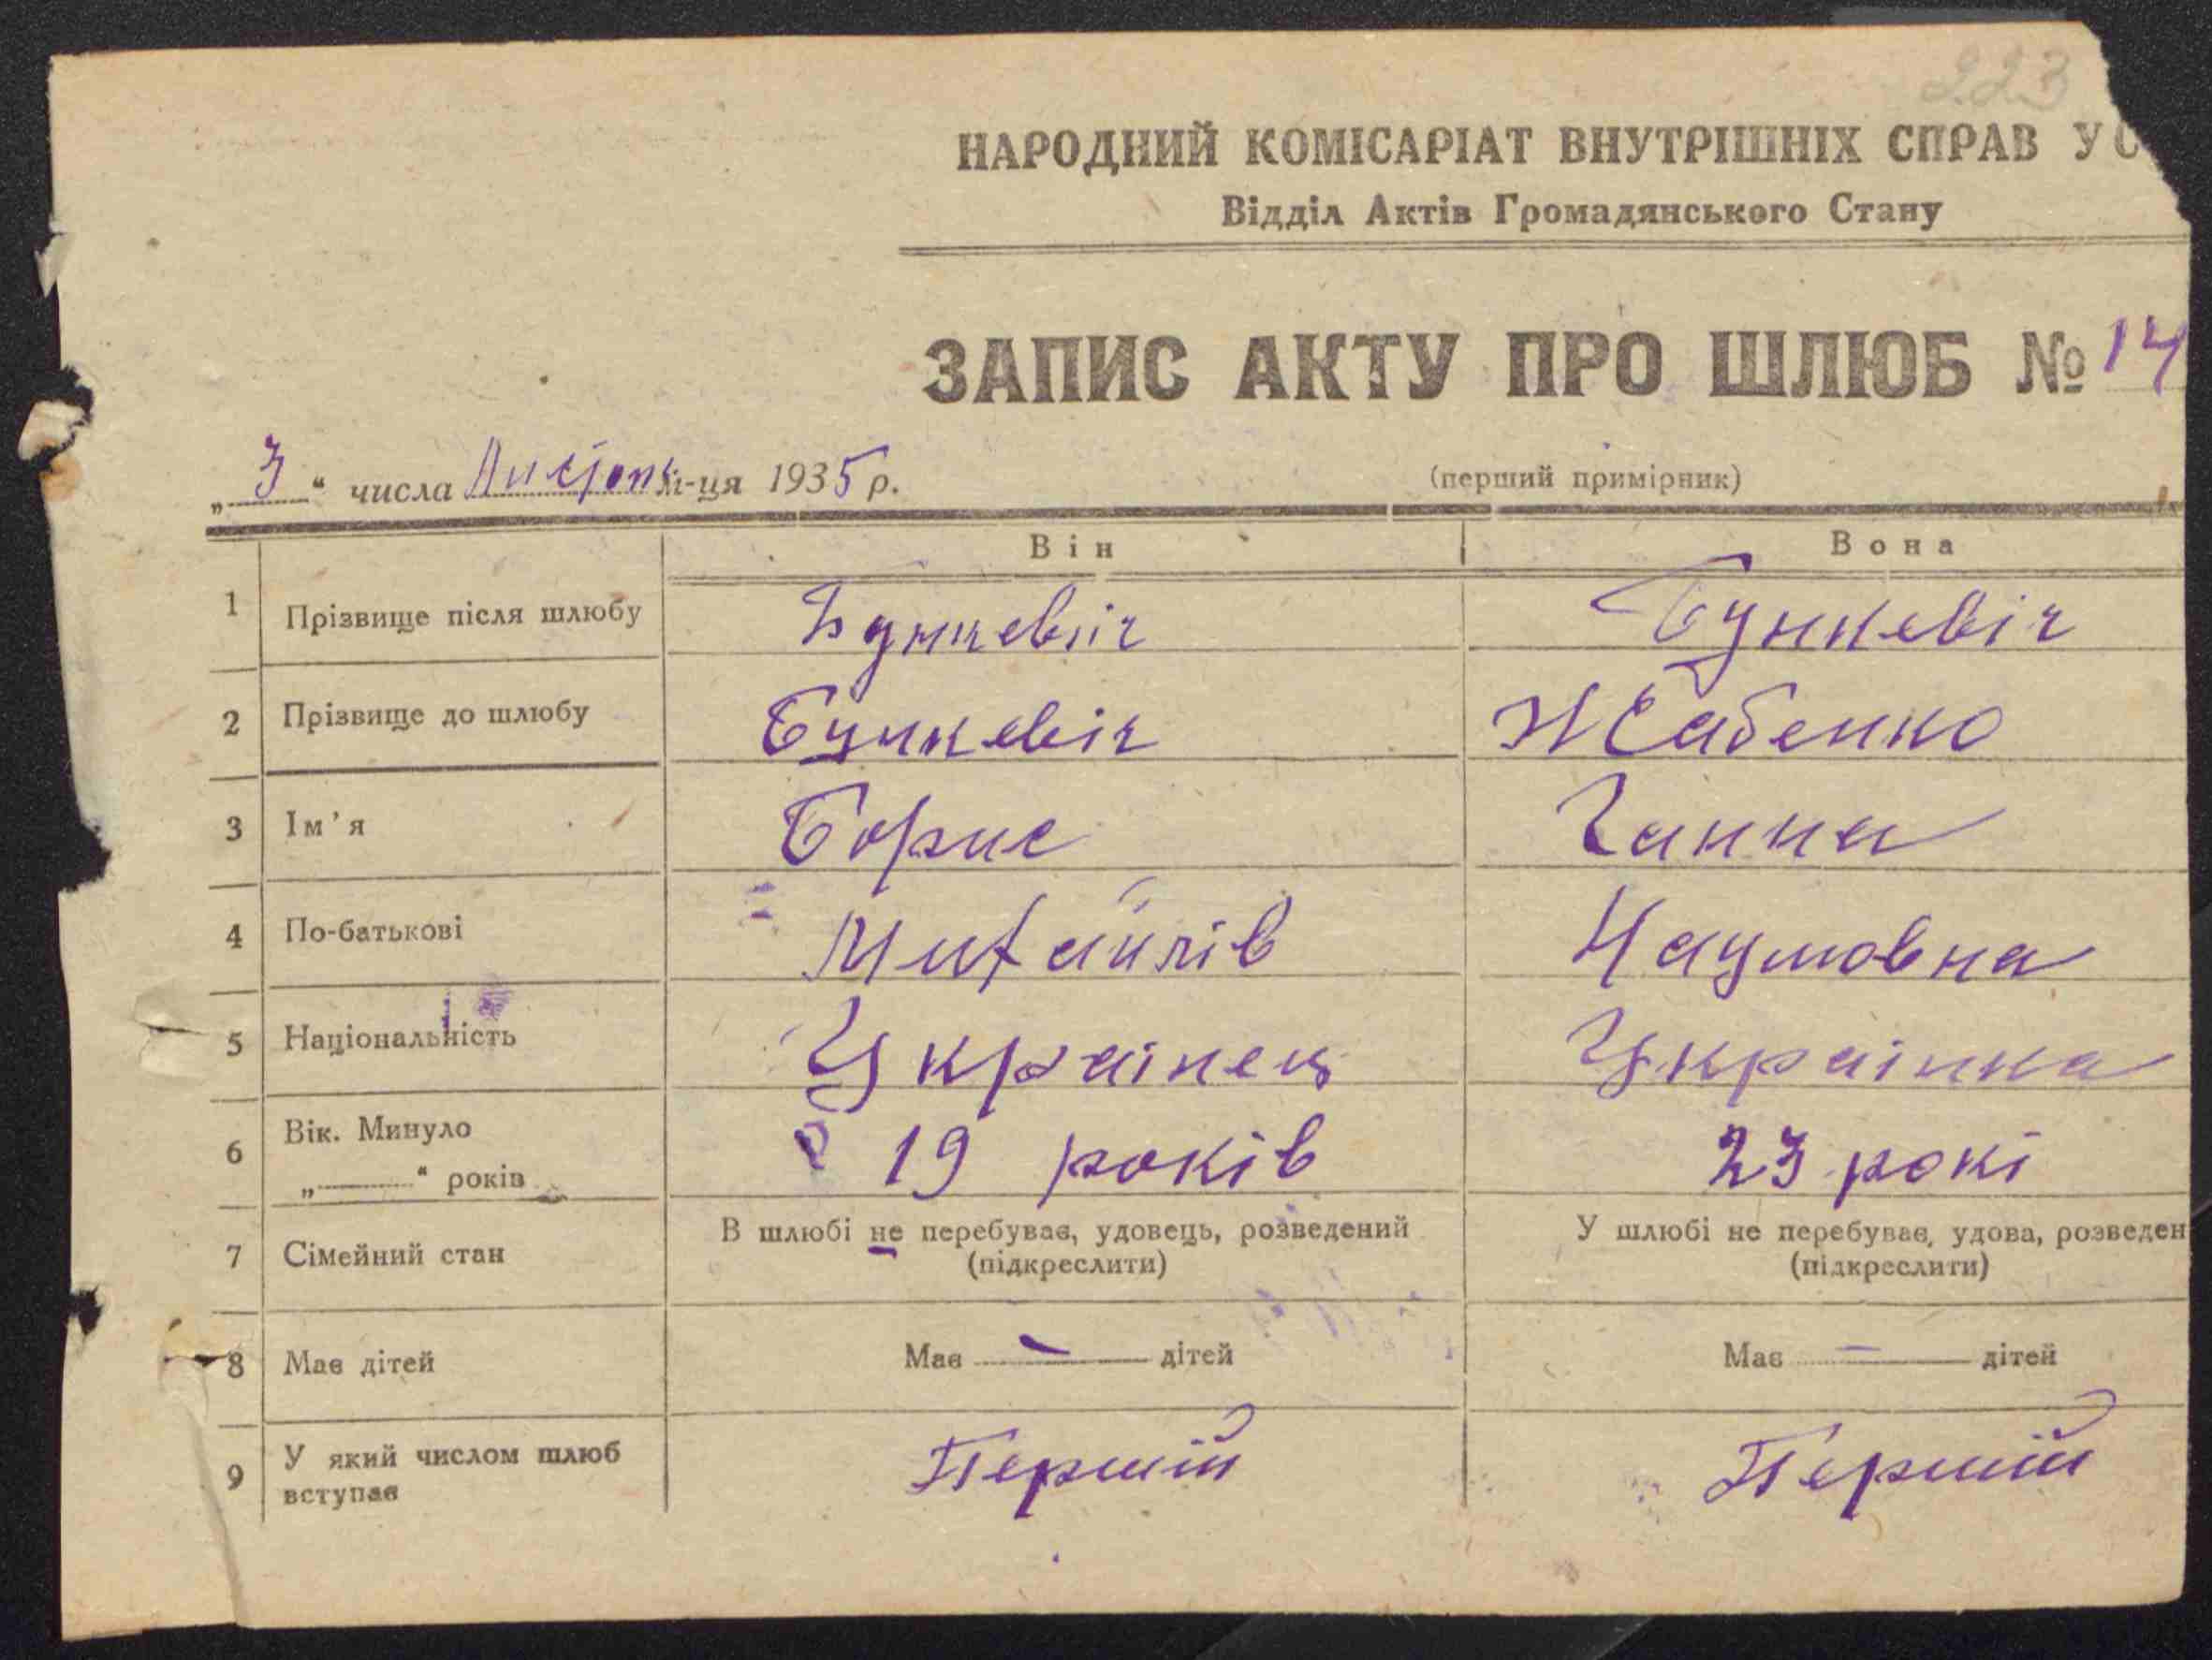 223
НАРОДНИЙ КОМІСАРІАТ ВНУТРІШНІХ СПРАВ УС
Відділ Актів Громадянського Стану
ЗАПИС АКТУ ПРО ШЛЮБ № 14
„3“ числа Листоп м-ця 1935 р.
(перший примірник)
Він Вона
1 Прізвище після шлюбу Бункевіч Бункевіч
2 Прізвище до шлюбу Бункевіч Жабенко
3 Ім'я Борис Ганна
4 По-батькові Михайлів Наумовна
5 Національність Украінец Украінка
6 Вік. Минуло „——“ років 19 років 23 рокі
7 Сімейний стан В шлюбі не перебуває, удовець, розведений (підкреслити) У шлюбі не перебуває, удова, розведен (підкреслити)
8 Має дітей Має — дітей Має — дітей
9 У який числом шлюб вступає Першій Першій